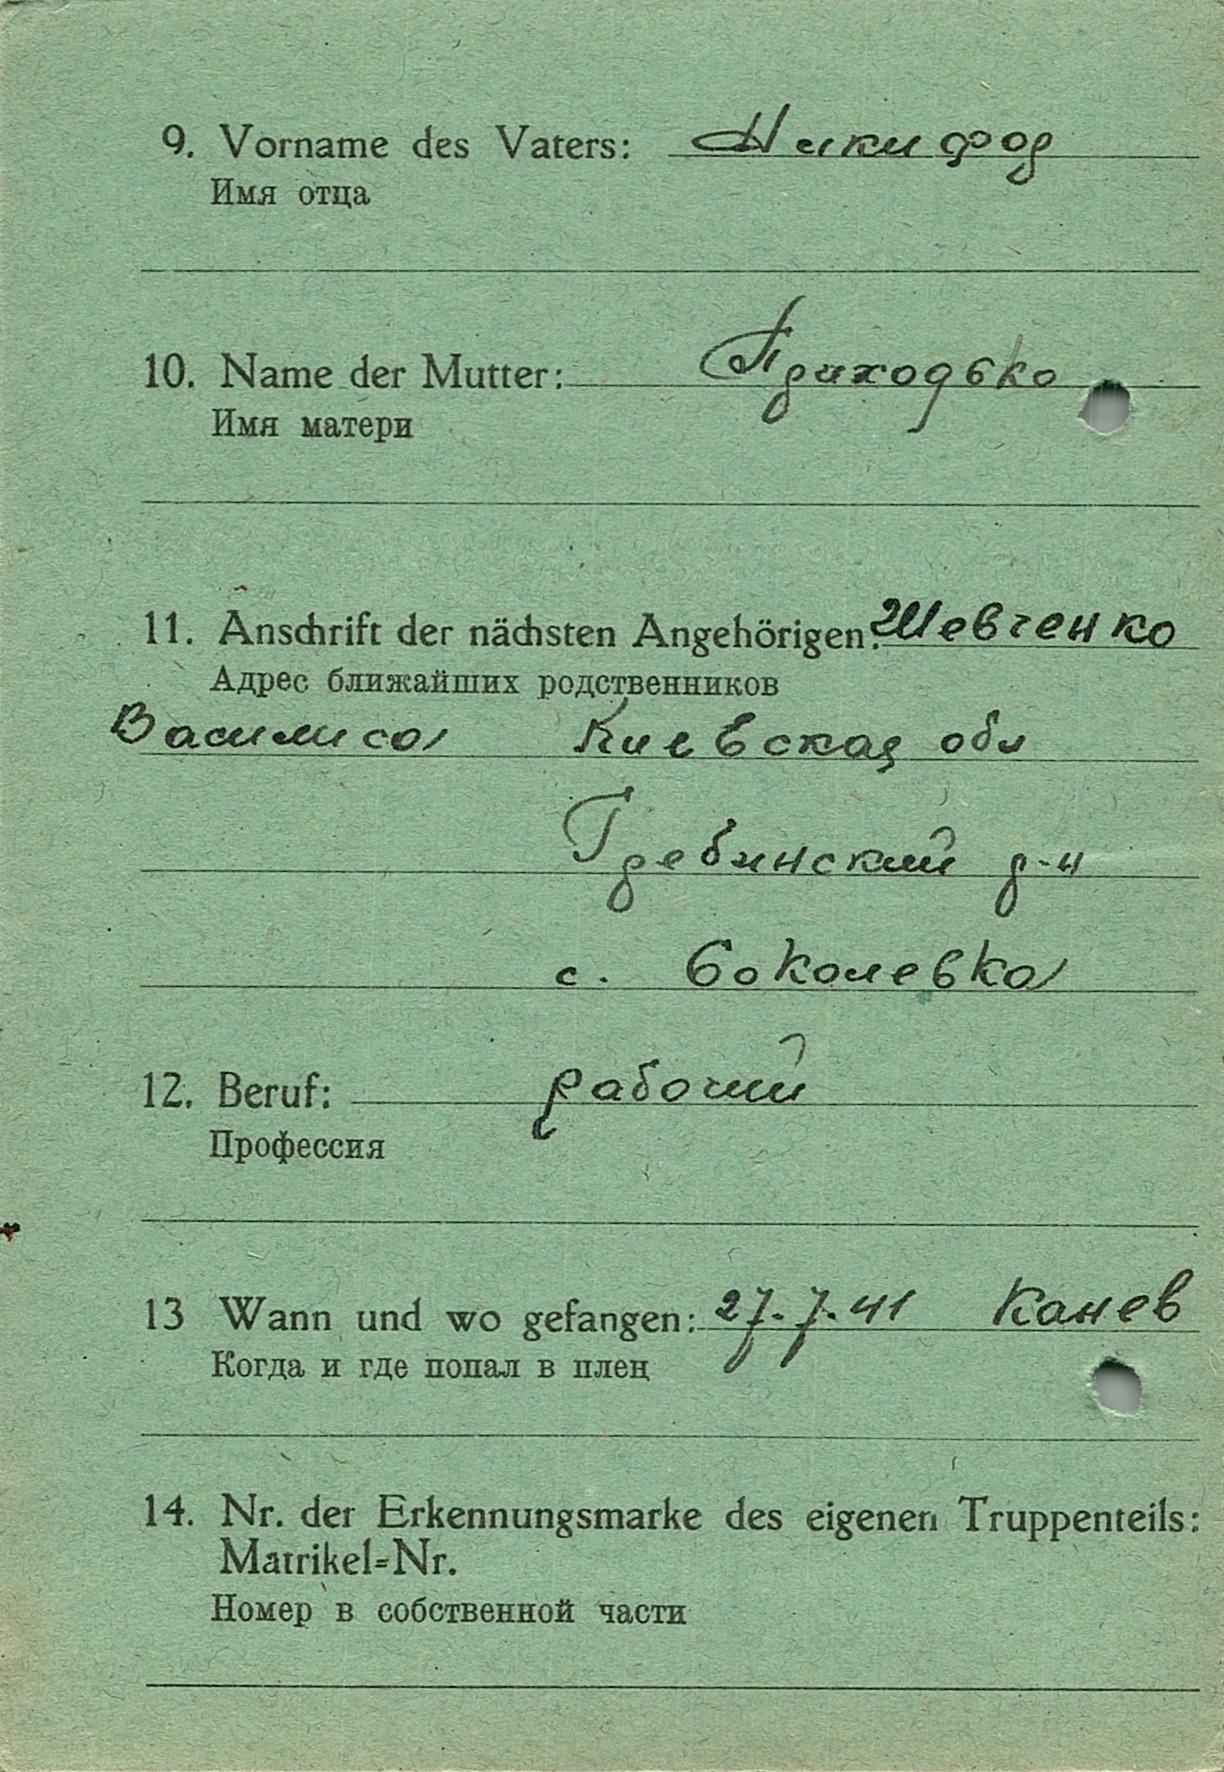 9. Vorname des Vaters: Никифор
Имя отца
10. Name der Mutter: Приходько
Имя матери
11. Anschrift der nächsten Angehörigen: Шевченко
Адрес ближайших родственников
Василиса Киевская обл
Гребинский р-н
с. Соколевка
12. Beruf: рабочий
Профессия
13 Wann und wo gefangen: 27.7.41 Канев
Когда и где попал в плен
14. Nr. der Erkennungsmarke des eigenen Truppenteils:
Matrikel=Nr.
Номер в собственной части